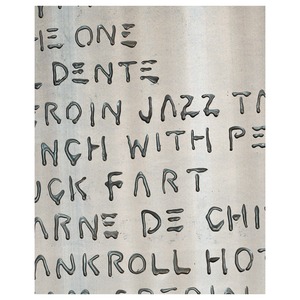 HE ONE
L DENTE
EROIN JAZZ TA
NCH WITH PE
UCK FART
ARNE DE CHI
ANKROLL HOT